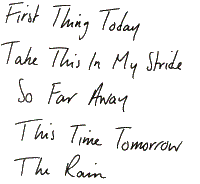 First Thing Today
Take This In My Stride
So Far Away
This Time Tomorrow
The Rain